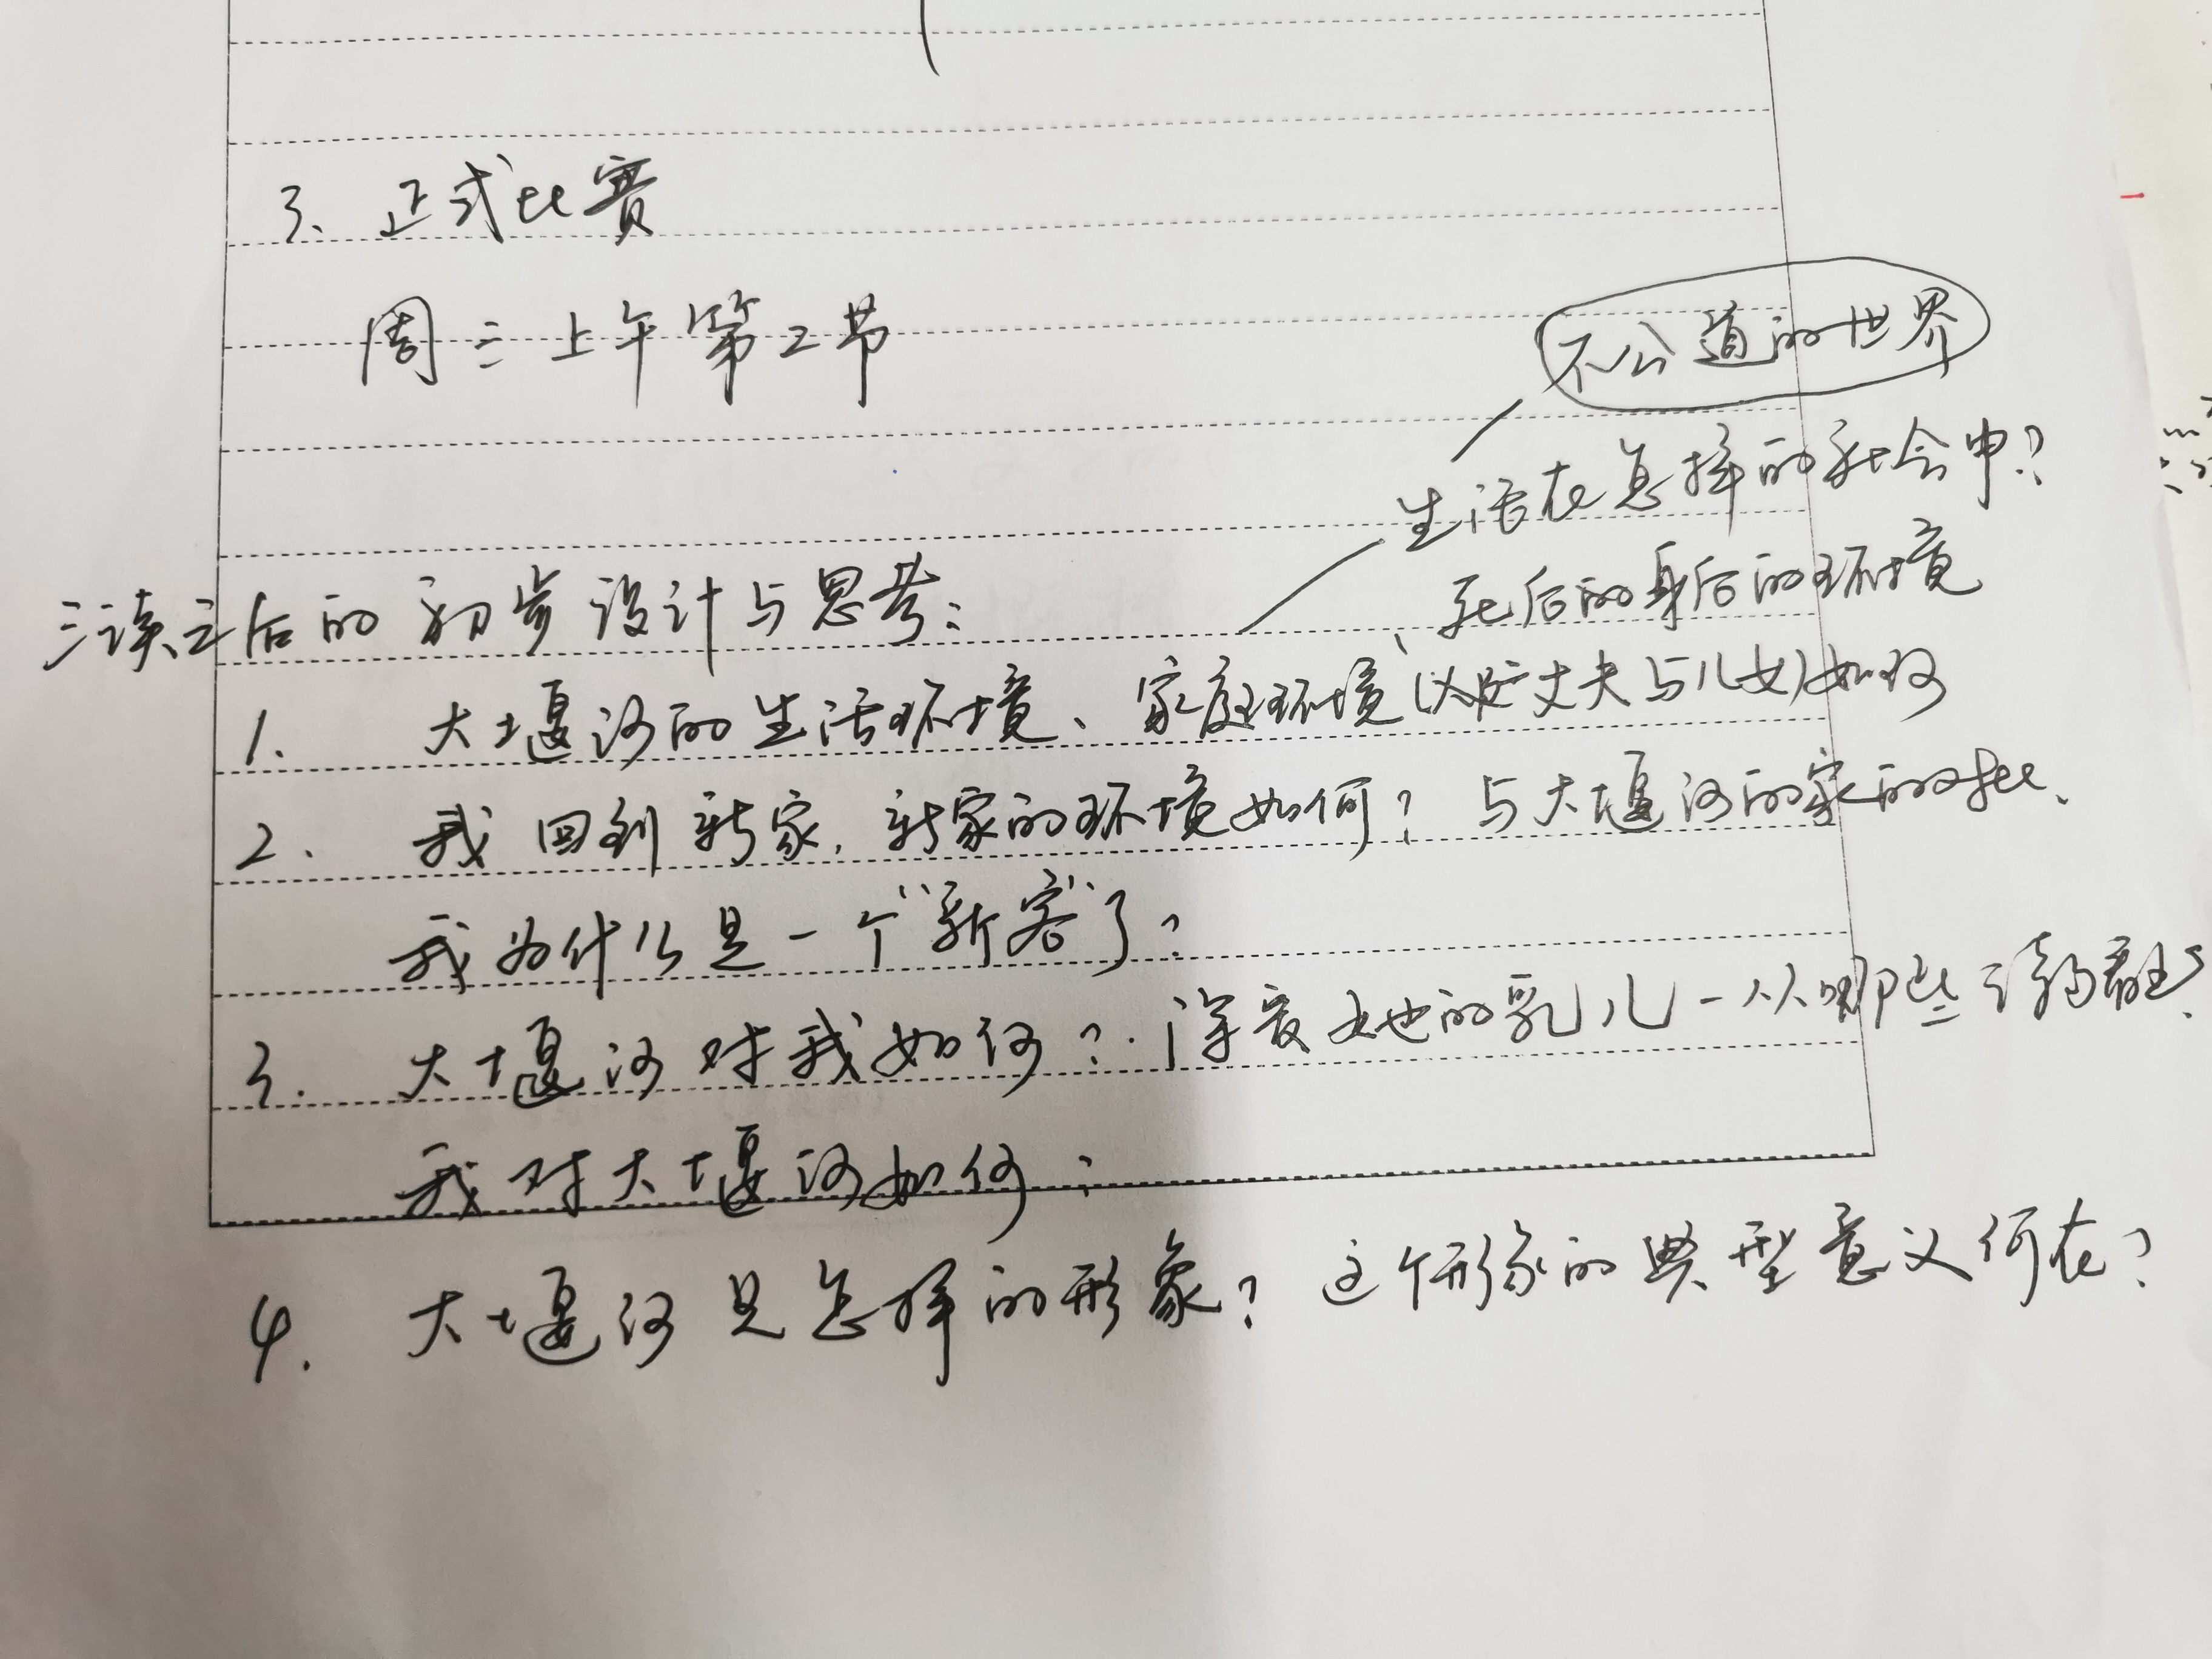 3、正式比赛
周三上午第2节
不公道的世界
生活在怎样的社会中？
三读之后的初步设计与思考：
、死后的身后的环境
1. 大堰河的生活环境、家庭环境（以及丈夫与儿女）如何
2. 我回到新家，新家的环境如何？与大堰河的家的对比、
我为什么是一个“新客”了？
3. 大堰河对我如何？深爱她的乳儿—从哪些
我对大堰河如何？
4. 大堰河是怎样的形象？这个形象的典型意义何在？